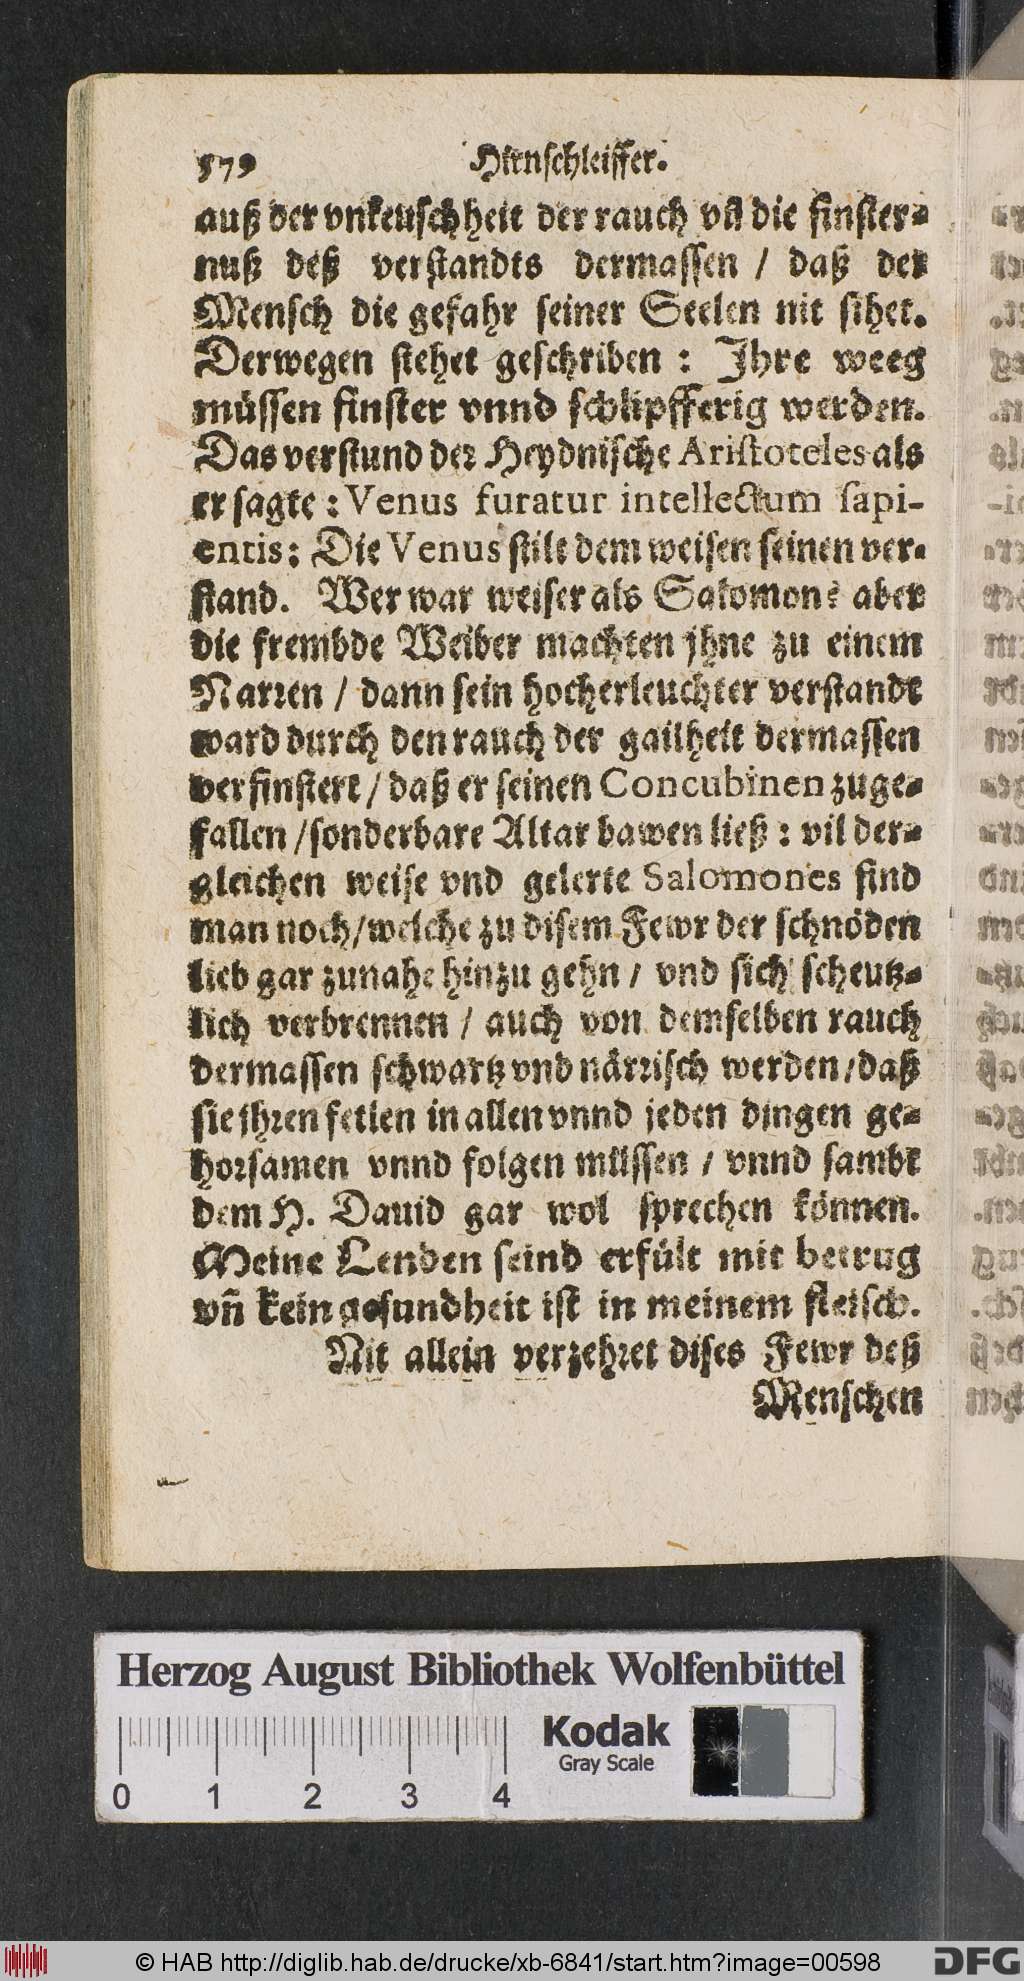 579 Hirnschleiffer.
auß der vnkeuschheit der rauch vñ die finster-
nuß deß verstandts dermassen / daß der
Mensch die gefahr seiner Seelen nit sihet.
Derwegen stehet geschriben : Ihre weeg
müssen finster vnnd schlipfferig werden.
Das verstund der Heydnische Aristoteles als
er sagte : Venus furatur intellectum sapi-
entis: Die Venus stilt dem weisen seinen ver-
stand. Wer war weiser als Salomon? aber
die frembde Weiber machten jhne zu einem
Narren / dann sein hocherleuchter verstandt
ward durch den rauch der gailheit dermassen
verfinstert / daß er seinen Concubinen zuge-
fallen / sonderbare Altar bawen ließ : vil der-
gleichen weise vnd gelerte Salomones find
man noch / welche zu disem Fewr der schnöden
lieb gar zunahe hinzu gehn / vnd sich scheutz-
lich verbrennen / auch von demselben rauch
dermassen schwartz vnd närrisch werden / daß
sie jhren fetlen in allen vnnd jeden dingen ge-
horsamen vnnd folgen müssen / vnnd sambt
dem H. Dauid gar wol sprechen können.
Meine Lenden seind erfült mit betrug
vñ kein gesundheit ist in meinem fleisch.
Nit allein verzehret dises Fewr deß
Menschen
Herzog August Bibliothek Wolfenbüttel
Kodak
Gray Scale
0 1 2 3 4
© HAB http://diglib.hab.de/drucke/xb-6841/start.htm?image=00598
DFG